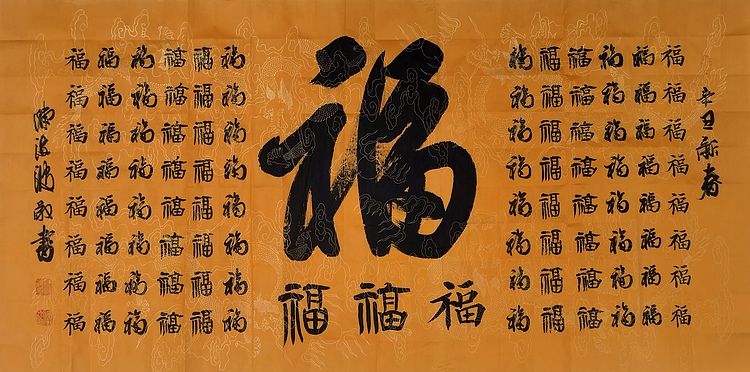 辛丑新春
福福福福福福福福
福福福福福福福福
福福福福福福福福
福福福福福福福福
福福福福福福福福
福福福福福福福福
福
福福福
福福福福福福福福
福福福福福福福福
福福福福福福福福
福福福福福福福福
福福福福福福福福
福福福福福福福福
敬書